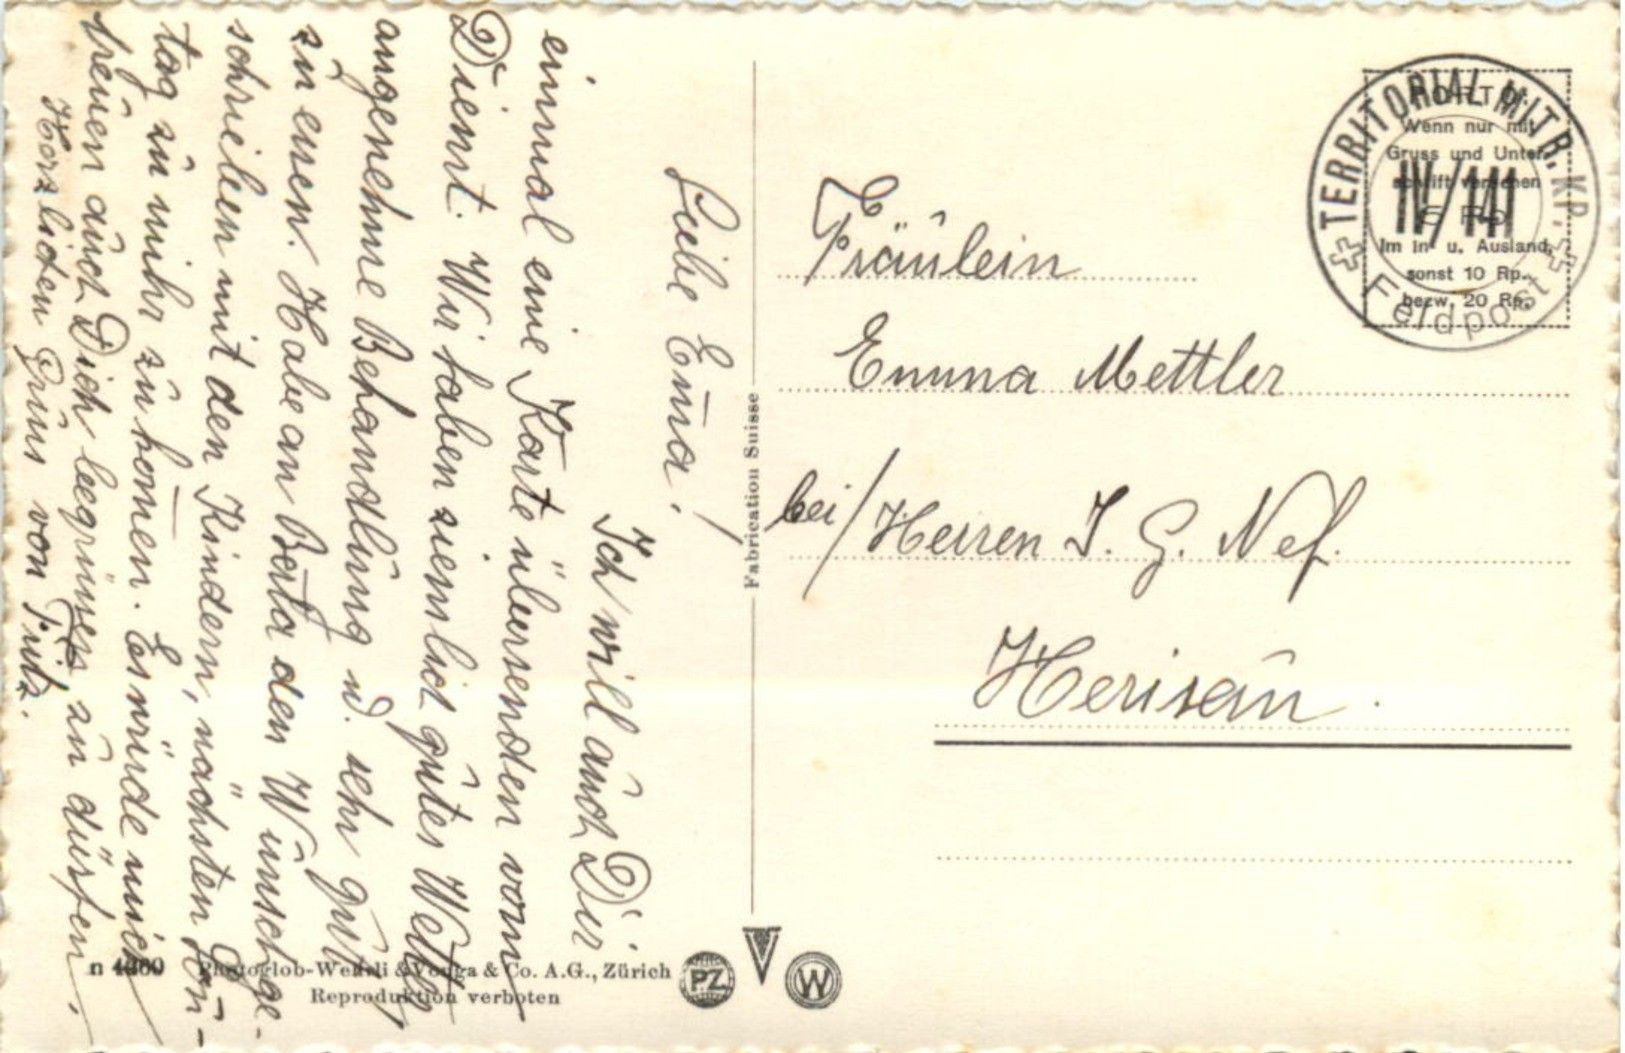 Liebe Em̄a!
Ich will auch Dir
einmal eine Karte übersenden vom
Dienst. Wir haben ziemlich gutes Wetter
angenehme Behandlung u. sehr gut
zu essen. Habe an Berta den Wunsch ge-
schrieben mit den Kindern, nächsten Son-
tag zu mihr zu kom̄en. Es würde mich
freuen auch Dich begrüssen zu dürfen.
Herzlichen Gruss von Fritz.
Fräulein
Emma Mettler
bei/Herren J. G. Nef.
Herisau.
TERRITORIAL MITR. KP.
IV/141
Feldpost
PORTO:
Wenn nur mit
Gruss und Unter-
schrift versehen
5 Rp.
Im In- u. Ausland,
sonst 10 Rp.
bezw. 20 Rp.
Fabrication Suisse
n Photoglob-Wehrli & Vouga & Co. A.G., Zürich
Reproduktion verboten
PZ V W